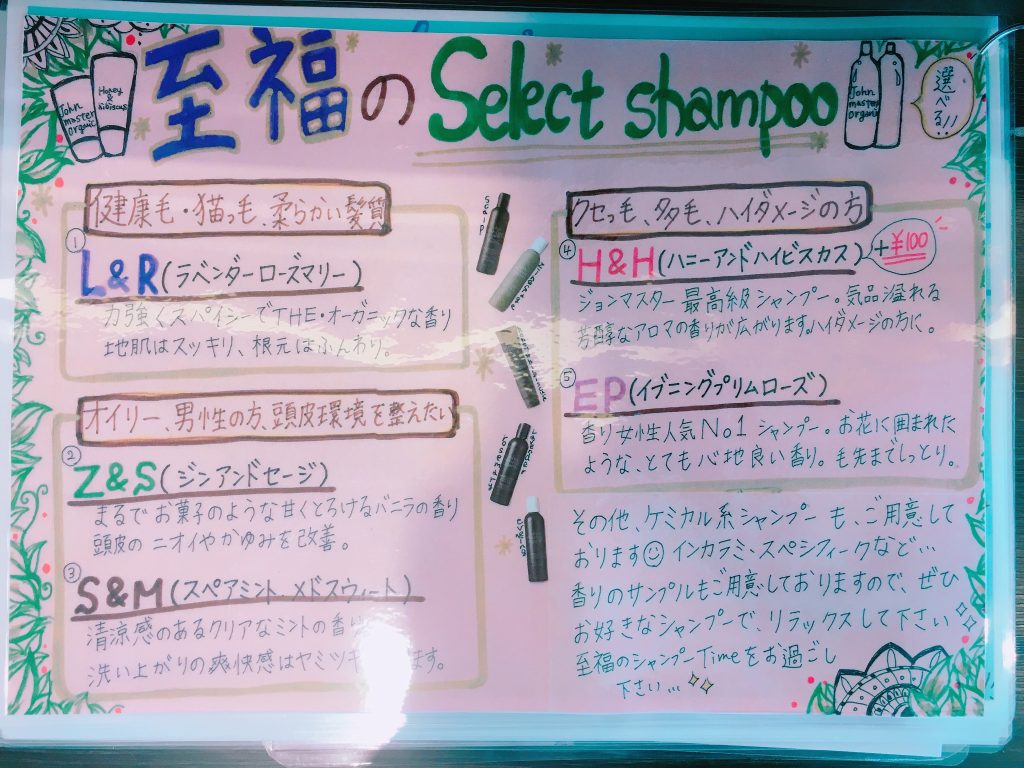 至福の Select shampoo
John master organic
Honey & hibiscus
John master organic
選べる!!
健康毛・猫っ毛、柔らかい髪質
① L&R(ラベンダーローズマリー)
力強くスパイシーでTHE・オーガニックな香り
地肌はスッキリ、根元はふんわり。
オイリー、男性の方、頭皮環境を整えたい
② Z&S(ジンアンドセージ)
まるでお菓子のような甘くとろけるバニラの香り
頭皮のニオイやかゆみを改善。
③ S&M(スペアミント.メドスウィート)
清涼感のあるクリアなミントの香り
洗い上がりの爽快感はヤミツキ ます。
Scalp
クセっ毛、多毛、ハイダメージの方
④ H&H(ハニーアンドハイビスカス) +¥100
ジョンマスター最高級シャンプー。気品溢れる
芳醇なアロマの香りが広がります。ハイダメージの方に。
⑤ EP(イブニングプリムローズ)
香り女性人気No1シャンプー。お花に囲まれた
ような、とても心地良い香り。毛先までしっとり。
その他、ケミカル系シャンプーも、ご用意して
おります☺インカラミ、スペシフィークなど...
香りのサンプルもご用意しておりますので、ぜひ
お好きなシャンプーで、リラックスして下さい
至福のシャンプーTimeをお過ごし
下さい...